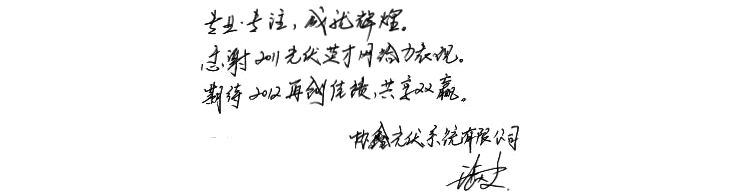 专业·专注，成就辉煌。
感谢2011光伏英才网给力表现。
期待2012再创佳绩，共享双赢。
协鑫光伏系统有限公司